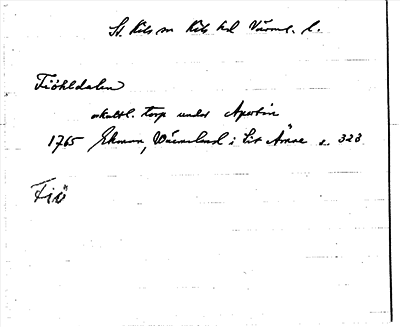 St. Kils sn Kils hd Värml. l.
Fiöhldalen
oskattl. torp under Apertin
1765 Ekman, Wärmeland i sitt Ämne s. 323
Fiö